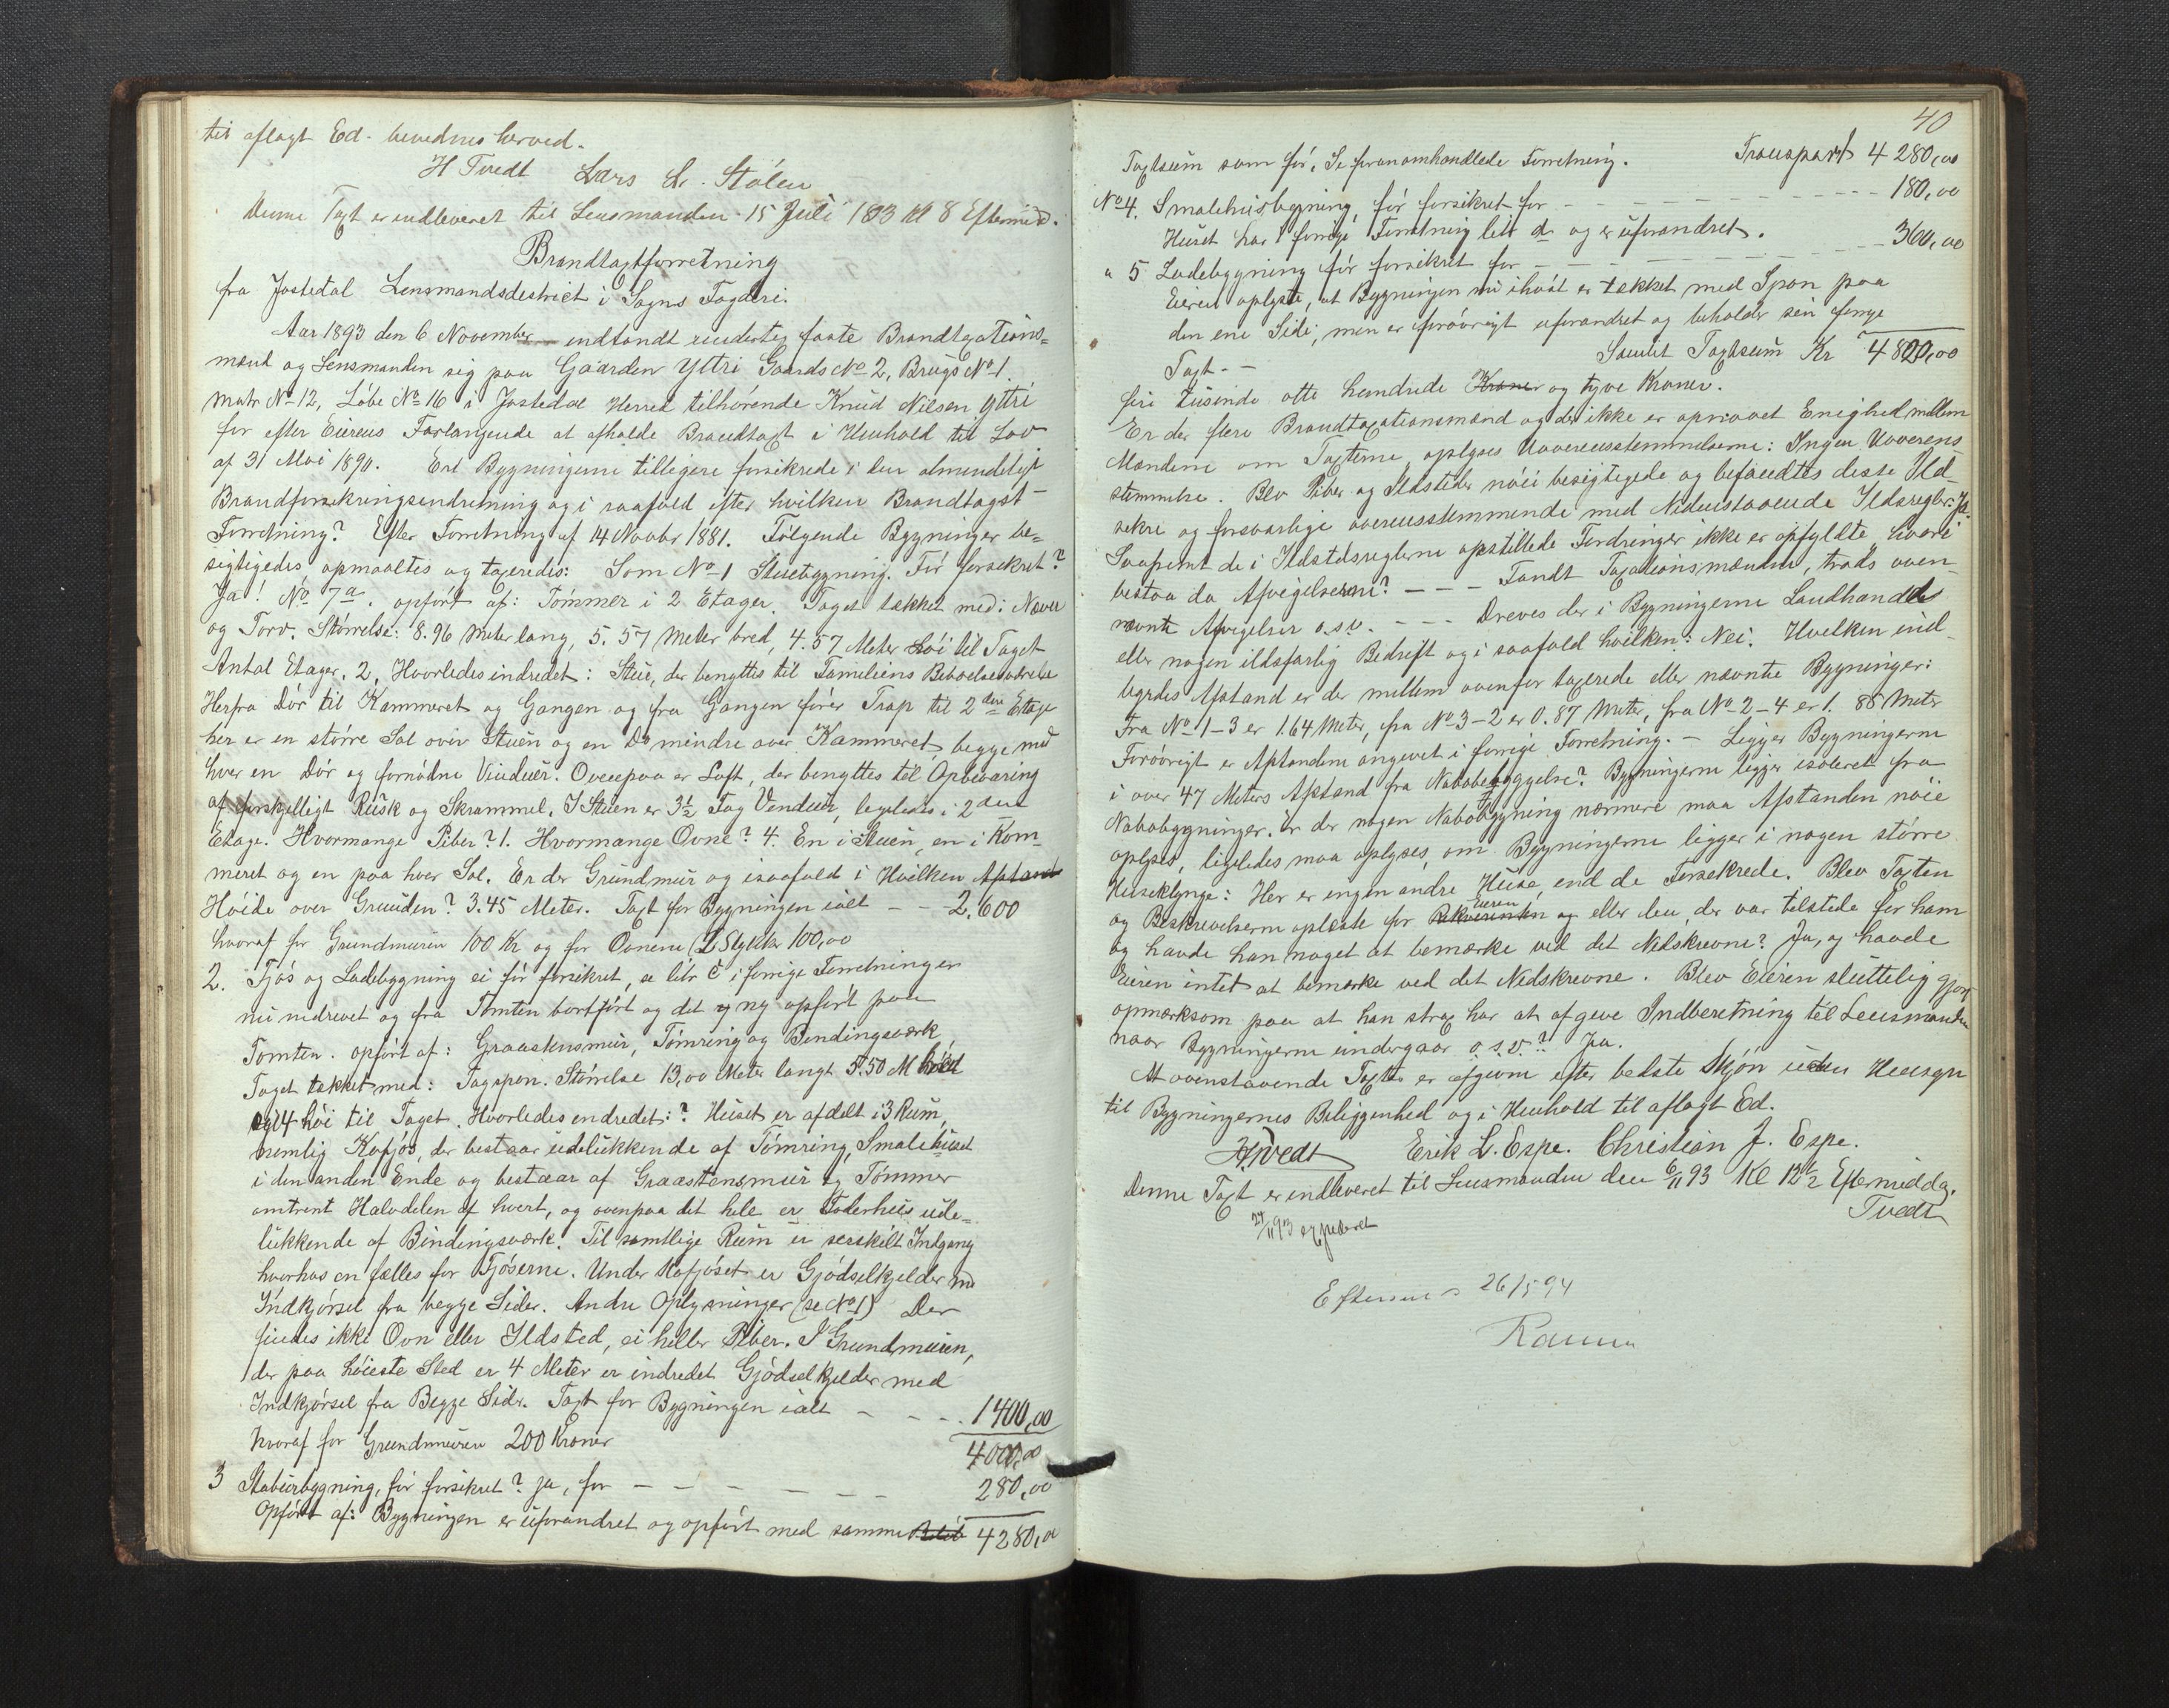 til aflagt Ed - bevidnes herved.
H Tvedt Lars L. Stölen
Denne Taxt er indleveret til Lensmanden 15 Juli 1893 Kl 8 Eftermid.
Brandtaxtforretning
fra Jostedal Lensmandsdestrict i Sogns Fogderi.
Aar 1893 den 6 November indfandt underteg faste Brandtaxations=
mænd og Lensmanden sig paa Gaarden Yttri Gaards No 2, Brugs No 1.
Matr No 12, Löbe No 16 i Jostedal Herred tilhörende Knud Nilsen Yttri
for efter Eierens Forlangende at afholde Brandtaxt i Henhold til Lov
af 31 Mai 1890. Ere Bygningerne tilligere forsikrede i den almindelige
Brandforsikringsindretning og i saafald efter hvilken Brandtaxt-
Forretning? Efter Forretning af 14 Novbr 1881. Fölgende Bygninger be=
sigtigedes opmaaltes og taxeredes: Som No 1 Stuebygning. För forsikret?
Ja! No 7a. opfört af: Tömmer i 2 Etager. Taget tækket med: Næver
og Torv. Störrelse: 8.96 Meter lang, 5.57 Meter bred, 4.57 Meter höi til Taget
Antal Etager. 2. Hvorledes indredet: Stue, der benyttes til Familiens Beboelseværelse
Herfra Dör til Kammeret og Gangen og fra Gangen förer Trap til 2den Etage
her er en större Sal over Stuen og en Do mindre over Kammeret, begge med
hver en Dör og fornödne Vinduer. Ovenpaa er Loft, der benyttes til Opbevaring
af forskjelligt Rusk og Skrammel. I Stuen er 3½ Fag Vinduer, ligeledes i 2den
Etage. Hvormange Piber? 1. Hvormange Ovne? 4. En i Stuen, en i Kam-
meret og en paa hver Sal. Er der Grundmur og isaafald i Hvilken Afstand
Höide over Grunden? 3.45 Meter. Taxt for Bygningen ialt - - 2.600
hvoraf for Grundmuren 100 Kr og for Ovnene Stykker 100,00
2. Fjös og Ladebygning ei för forsikret, se litr c i forrige Forretning er
nu nedrevet og fra Tomten bortfört og det ny opfört paa
Tomten. opfört af: Graastensmur, Tömring og Bindingsværk
Taget tækket med: Tagspon. Störrelse 13,00 Meter langt 5.50 M bred
og 4 höi til Taget. Hvorledes endredet:? Huset er afdelt i 3 Rum,
nemlig Kofjös, der bestaar udelukkende af Tömring, Smalehuset
i den anden Ende og bestaar af Graastensmur og Tömmer
omtrent Halvdelen af hvert, og ovenpaa det hele er Foderhus ude=
lukkende af Bindingsværk. Til samtlige Rum er serskilt Indgang
hvorhos en fælles for Fjöserne. Under Kofjöset er Gjödselkjelder med
Indkjörsel fra begge Sider. Andre Oplysninger (se No 1) Der
findes ikke Ovn eller Ildsted, ei heller Piber. I Grundmuren,
der paa höieste Sted er 4 Meter er indredet Gjödselkjelder med
Indkjörsel fra Begge Sider. Taxt for Bygningen ialt - - - 1400,00
hvoraf for Grundmuren 200 Kroner 4000,00
3 Stabursbygning, för forsikret? ja, for - - - - - - 280,00
Opfört af: Bygningen er uforandret og opfört med samme 4280,00
40
Taxtsum som för, Se foranomhandlede Forretning. Transport 4 280,00
No 4. Smalehusbygning, för forsikret for - - - - - - 180,00
Huset har i forrige Forretning litr d og er uforandret.
" 5 Ladebygning för forsikret for - - - - - - 360,00
Eieren oplyste, at Bygningen nu ihöst er tækket med Spon paa
den ene Side; men er forövrigt uforandret og beholder sin forrige
Taxt. - Samlet Taxtsum Kr 4820,00
fire tusinde otte hundrede Kroner og tyve Kroner.
Er der flere Brandtaxationsmænd og der ikke er opnaaet Enighed mellem
Mændene om Taxterne, oplyses Uoverensstemmelserne: Ingen Uoverens-
stemmelse. Blev Piber og Ildsteder nöie besigtigede og befandtes disse Ild-
sekre og forsvarlige overensstemmende med Nidenstaaende Ildsregler: Ja.
Saafremt de i Ildstedsreglerne opstillede Fordringer ikke er opfyldte, hvori
bestaa da Afvigelserne? - - - Fandt Taxationsmændene, trods oven-
nævnte Afvigelser o.s.v. - - - Dreves der i Bygningerne Landhandel
eller nogen ildsfarlig Bedrift og i saafald hvilken: Nei. Hvilken ind-
byrdes Afstand er der mellem ovenfor taxerede eller nævnte Bygninger:
Fra No 1-3 er 1.64 Meter, fra No 3-2 er 0.87 Meter, fra No 2-4 er 1.88 Meter
Forövrigt er Afstandene angivet i forrige Forretning. - Ligger Bygningerne
i over 47 Meters Afstand fra Nabobebyggelse? Bygningerne ligger isoleret fra
Nabobygninger. Er der nogen Nabobygning nærmere maa Afstanden nöie
oplyses, ligeledes maa oplyses, om Bygningerne ligger i nogen större
Huseklynge: Her er ingen andre Huse end de Forsekrede. Blev Taxten
og Beskrivelserne oplæste for Rekvirenten Eieren og eller den, der var tilstede for ham
og havde han noget at bemærke ved det Nedskrevne? Ja, og havde
Eieren intet at bemærke ved det Nedskrevne. Blev Eieren sluttelig gjort
opmærksom paa at han strax har at afgive Indberetning til Lensmanden
naar Bygningerne undergaar o.s.v.? Ja.
At ovenstaaende Taxter er afgivne efter bedste Skjön uden Hensyn
til Bygningernes Beliggenhed og i Henhold til aflagt Ed.
HTvedt Erik L. Espe. Christian J. Espe.
Denne Taxt er indleveret til Lensmanden den 6/11 93 Kl 12½ Eftermiddag.
Tvedt
24/11 93 expederet
Efterseet 26/5 94